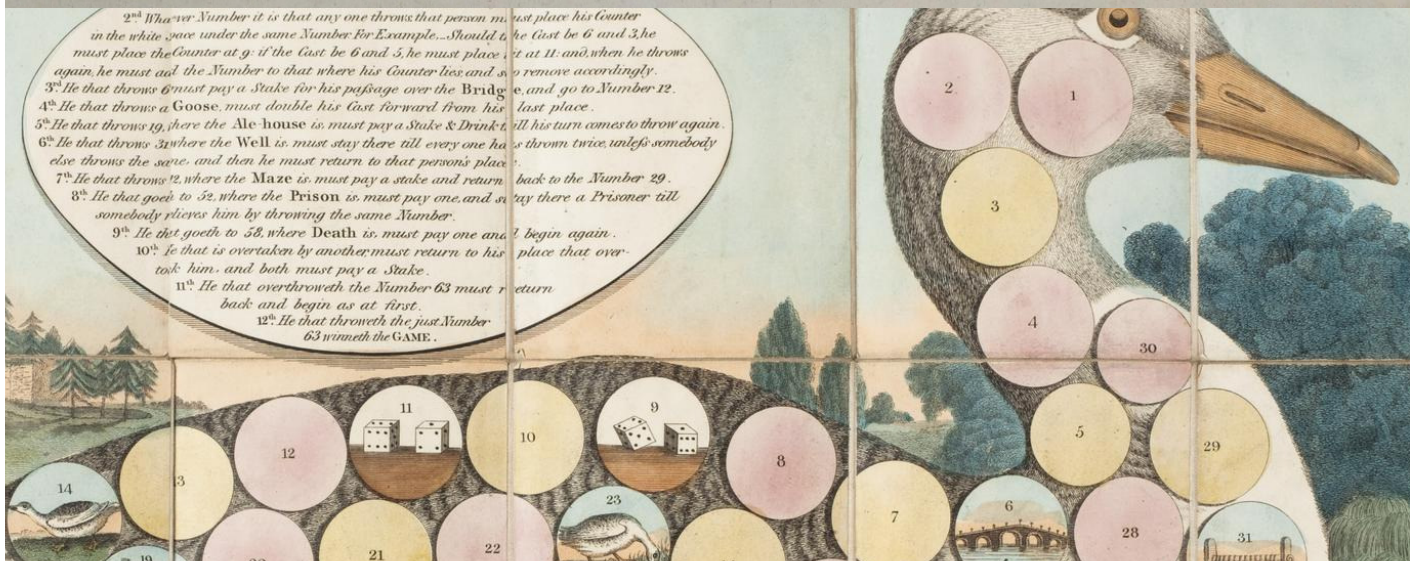 2nd Whatever Number it is that any one throws that person must place his Counter
in the white space under the same Number For Example._Should the Cast be 6 and 3, he
must place the Counter at 9: if the Cast be 6 and 5, he must place it at 11: and, when he throws
again, he must add the Number to that where his Counter lies, and so remove accordingly.
3rd He that throws 6 must pay a Stake for his paſsage over the Bridge, and go to Number 12.
4th He that throws a Goose, must double his Cast forward from his last place.
5th He that throws 19, where the Ale-house is, must pay a Stake & Drink till his turn comes to throw again.
6th He that throws 31 where the Well is, must stay there till every one has thrown twice, unleſs somebody
else throws the same, and then he must return to that person's place.
7th He that throws 42, where the Maze is, must pay a stake and return back to the Number 29.
8th He that goeth to 52, where the Prison is, must pay one, and stay there a Prisoner till
somebody relieves him by throwing the same Number.
9th He that goeth to 58, where Death is, must pay one and begin again.
10th He that is overtaken by another must return to his place that over-
took him, and both must pay a Stake.
11th He that overthroweth the Number 63 must return
back and begin as at first.
12th He that throweth the just Number
63 winneth the GAME.
2
1
3
4
30
11
9
12
10
8
5
29
14
13
23
7
6
28
19
21
22
31